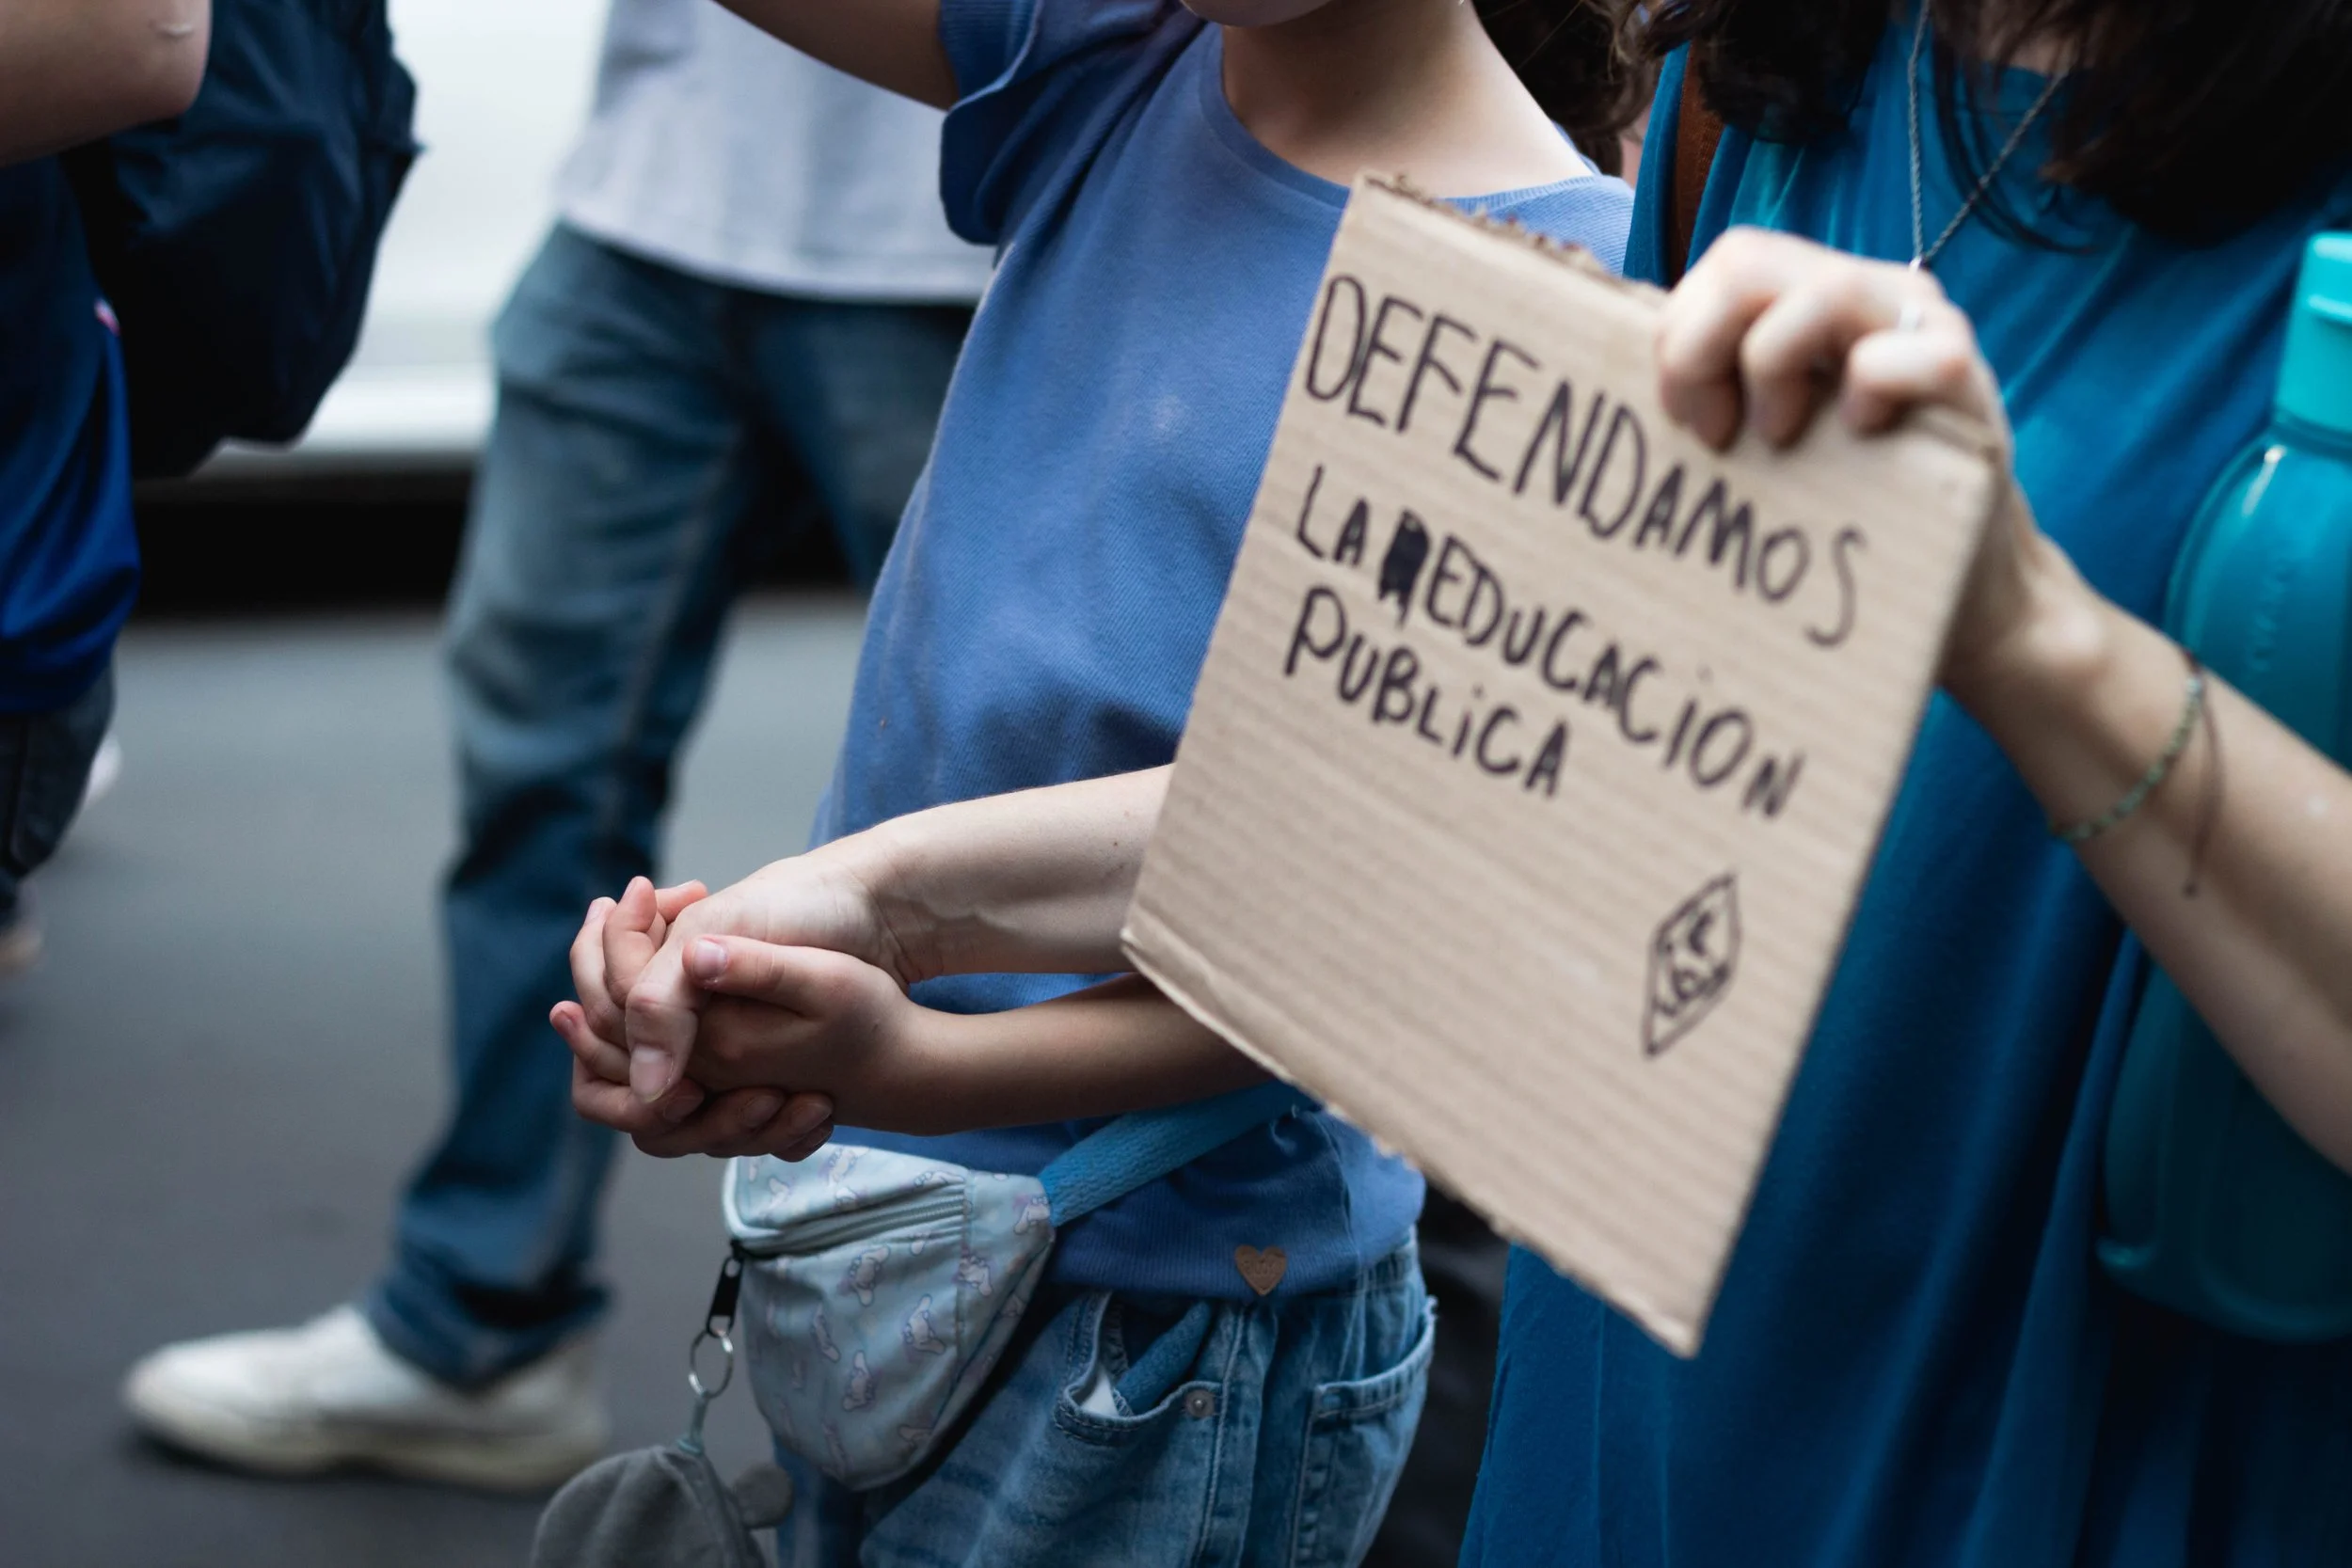 DEFENDAMOS
LA EDUCACiON
PUBLiCA